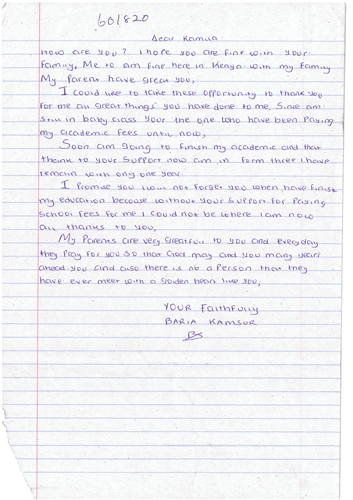 601820
Dear Kamila
How are you? I hope you are fine with your
family, Me to am fine here in Kenya with my family
My Parent have great you,
I could like to take these opportunity to thank you
for me all great things you have done to me, Since am
still in baby class your the one who have been paying
my academic fees until now,
Soon am going to finish my academic and that
thank to your Support now am in form three I have
remain with only one year.
I Promise you I will not forget you when have finish
my education because without your Support for Paying
School Fees for me I could not be where I am now
all thanks to you,
My Parents are very greatfull to you and everyday
they Pray for you So that God may and you many years
ahead you and also there is no a Person that they
have ever meet with a golden heart like you,
YOUR Faithfully
BARIA KAMSUR